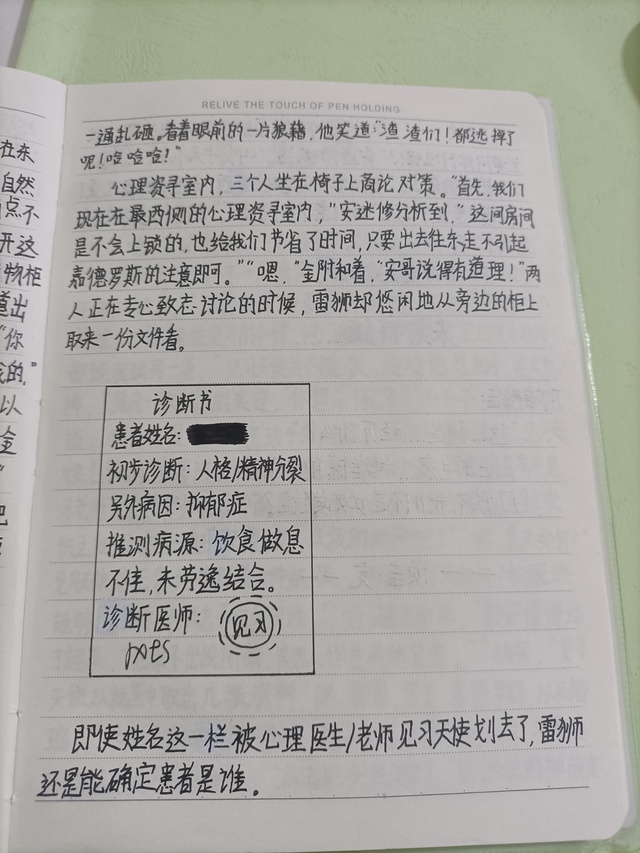 在东
自然
点不
开这
物柜
道出
"你
的."
以
金
把
RELIVE THE TOUCH OF PEN HOLDING
一通乱砸。看着眼前的一片狼藉,他笑道:"渣渣们!都逃掉了
呢!哈哈哈!"
心理资寻室内,三个人坐在椅子上商论对策。"首先,我们
现在在最西侧的心理资寻室内,"安迷修分析到,"这间房间
是不会上锁的,也给我们节省了时间,只要出去往东走不引起
嘉德罗斯的注意即可。""嗯,"金附和着,"安哥说得有道理!"两
人正在专心致志讨论的时候,雷狮却悠闲地从旁边的柜上
取来一份文件看。
诊断书
患者姓名:
初步诊断:人格/精神分裂
另外病因:抑郁症
推测病源:饮食做息
不佳,未劳逸结合。
诊断医师:
见习
即使姓名这一栏被心理医生/老师见习天使划去了,雷狮
还是能确定患者是谁。